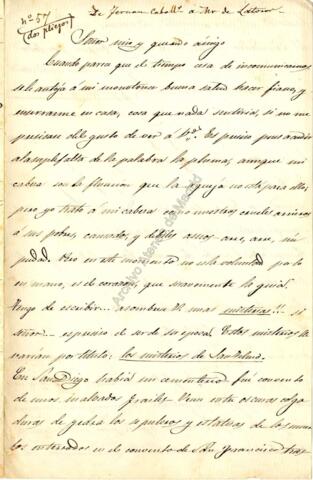 nº 57
(dos pliegos)
De Fernan Caballº a Mr de Latour
Señor mio y querido amigo
Cuando parece que el tiempo cesa de incomunicarnos
se le antoja á mi monotona buena salud hacer fiasco, y
encerrarme en casa, cosa que nada sentiria, si no me
privase del gusto de ver á Vdes. Es preciso pues acudir
á la falta de la palabra la pluma, aunque mi
cabeza con la fluxion que la aqueja no está para ello,
pero yo trato á mi cabeza como nuestros crueles arrieros
á sus pobres, cansados y debiles asnos arre, arre, sin
piedad. Pero en este momento no es la voluntad
la mano, es el corazon, que suavemente la guia.
Vengo de escribir... asombrese V. mas misterios!!! si
señor es preciso el ser de su epoca. Estos misterios
por titulo: los misterios de San
En San Diego habia un cementerio fué convento
de unos frailes. Venn entre oscuras
de piedra los sepulcros y estatuas de los
enterrados en el convento de San Francisco
Archivo Ateneo de Madrid